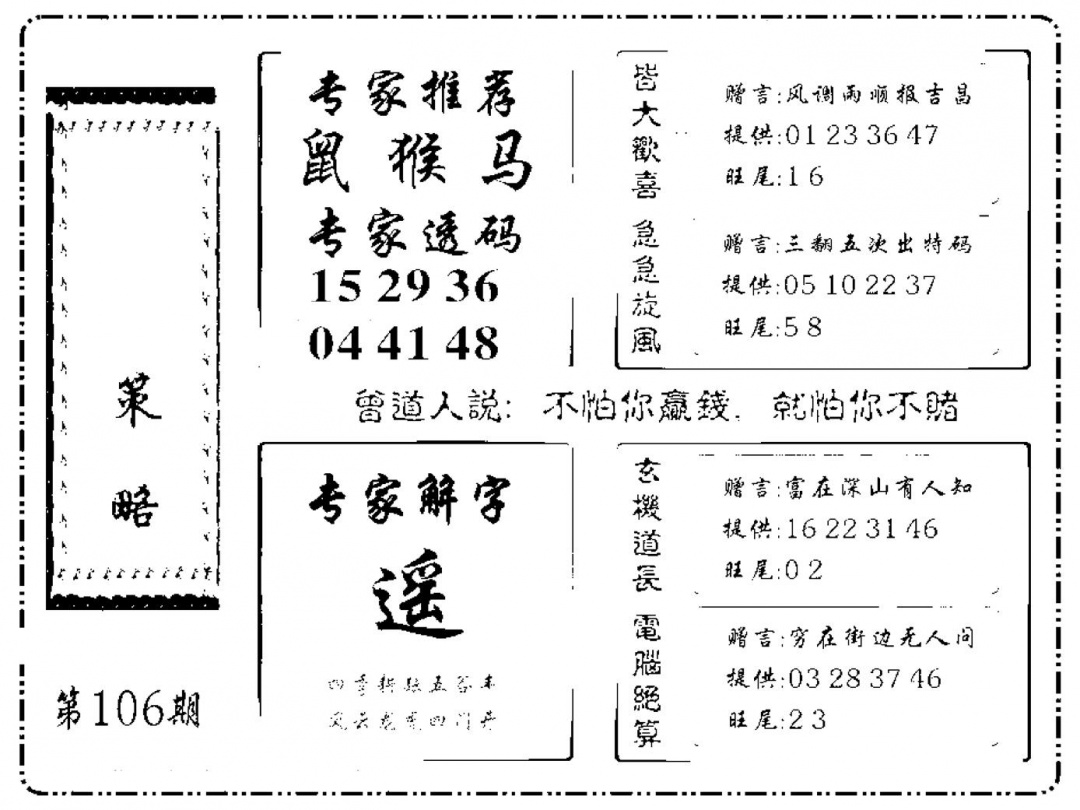 策略
第106期
专家推荐
鼠 猴 马
专家透码
15 29 36
04 41 48
皆大歡喜
赠言:风调雨顺报吉昌
提供:01 23 36 47
旺尾:1 6
急急旋風
赠言:三翻五次出特码
提供:05 10 22 37
旺尾:5 8
曾道人説: 不怕你贏錢, 就怕你不賭
专家解字
遥
玄機道長
赠言:富在深山有人知
提供:16 22 31 46
旺尾:0 2
電腦絕算
赠言:穷在街边无人问
提供:03 28 37 46
旺尾:2 3